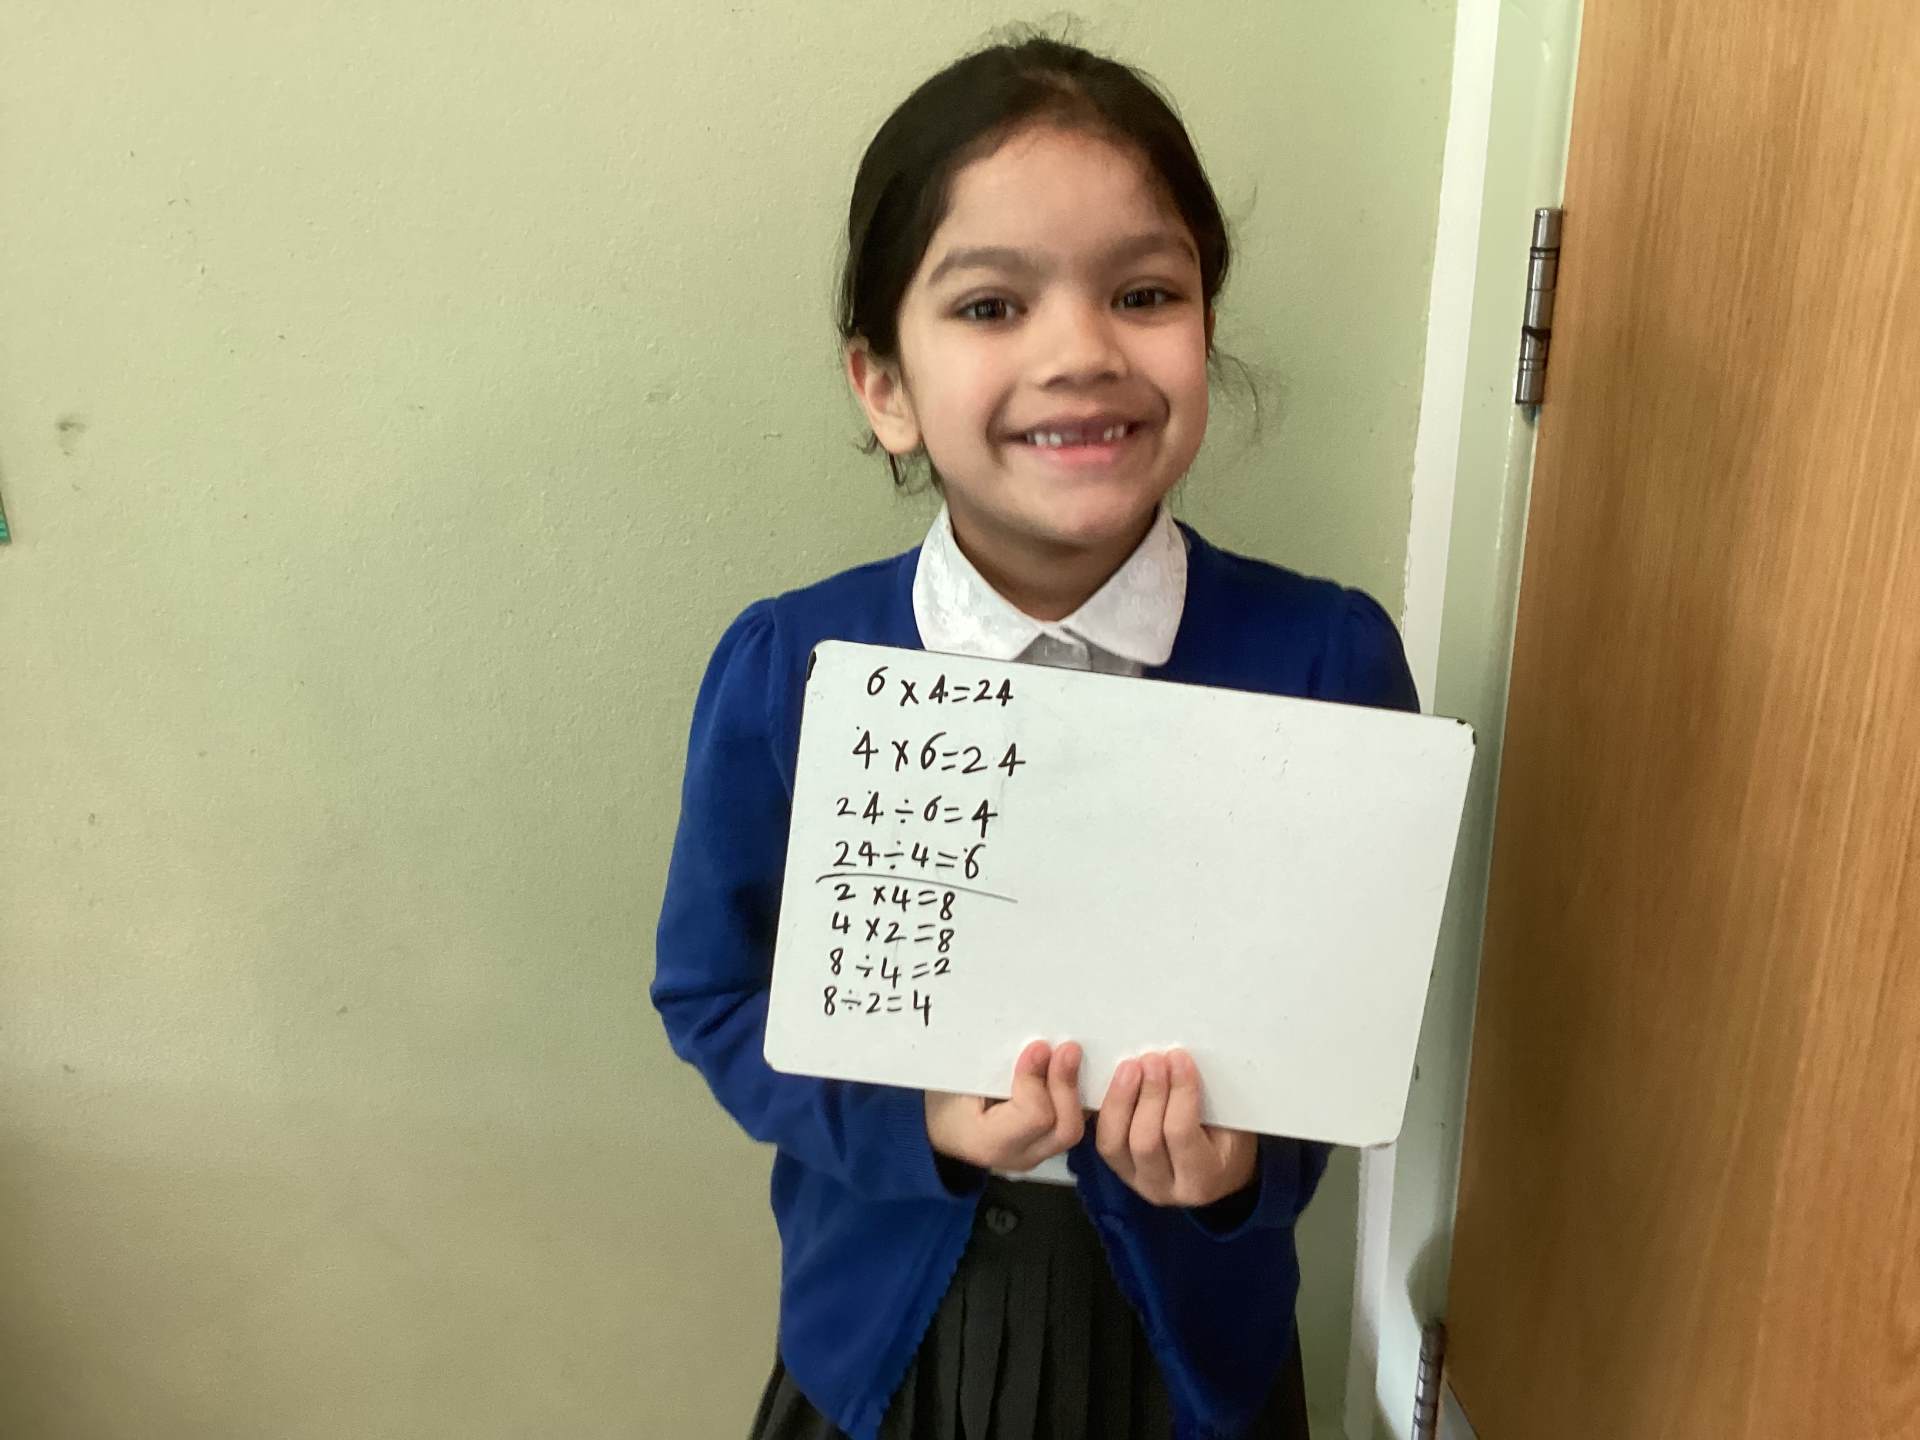 6 × 4 = 24
4 × 6 = 24
24 ÷ 6 = 4
24 ÷ 4 = 6
2 × 4 = 8
4 × 2 = 8
8 ÷ 4 = 2
8 ÷ 2 = 4